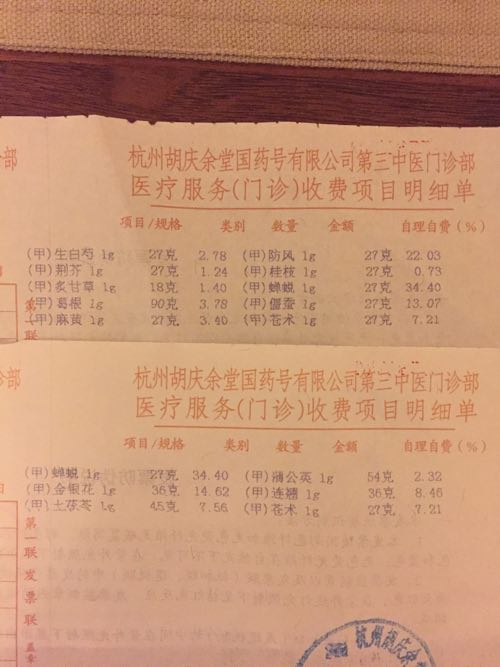 杭州胡庆余堂国药号有限公司第三中医门诊部
医疗服务(门诊)收费项目明细单
项目/规格 类别 数量 金额 自理自费(%)
(甲)生白芍 1g 27克 2.78 (甲)防风 1g 27克 22.03
(甲)荆芥 1g 27克 1.24 (甲)桂枝 1g 27克 0.73
(甲)炙甘草 1g 18克 1.40 (甲)蝉蜕 1g 27克 34.40
(甲)葛根 1g 90克 3.78 (甲)僵蚕 1g 27克 13.07
(甲)麻黄 1g 27克 3.40 (甲)苍术 1g 27克 7.21
部
第
联
杭州胡庆余堂国药号有限公司第三中医门诊部
医疗服务(门诊)收费项目明细单
项目/规格 类别 数量 金额 自理自费(%)
(甲)蝉蜕 1g 27克 34.40 (甲)蒲公英 1g 54克 2.32
(甲)金银花 1g 36克 14.62 (甲)连翘 1g 36克 8.46
(甲)土茯苓 1g 45克 7.56 (甲)苍术 1g 27克 7.21
部
第一联发票联
盖章
杭州胡庆余